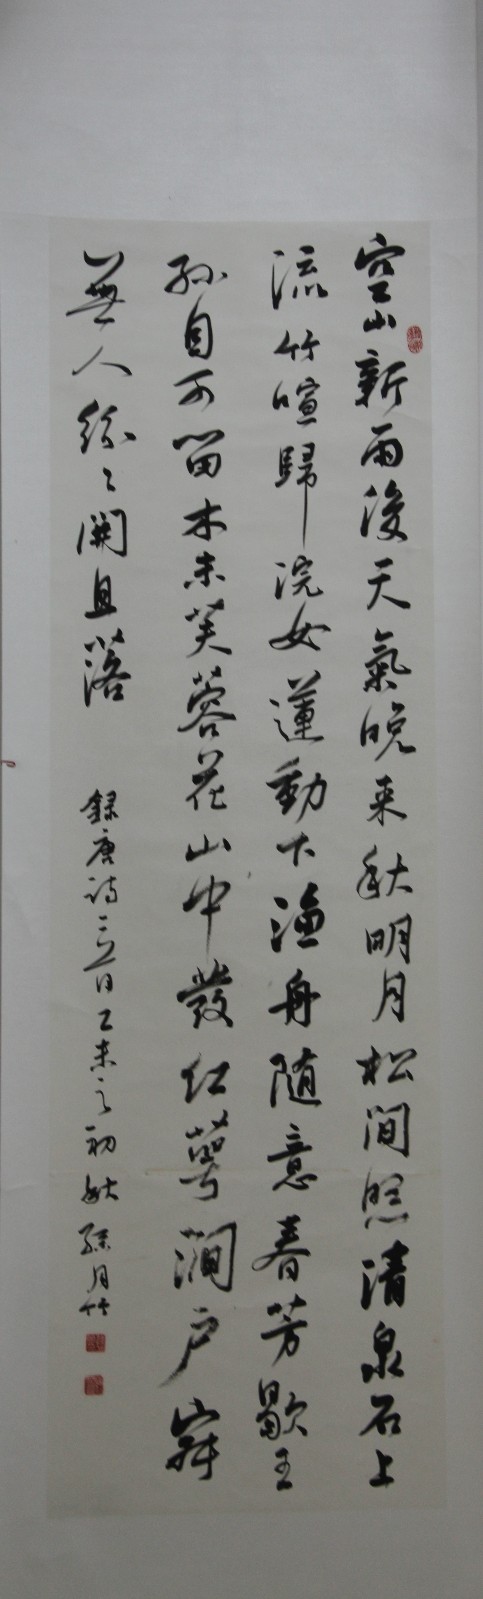 空山新雨後天氣晚来秋明月松間照清泉石上
流竹喧歸浣女蓮動下漁舟随意春芳歇王
孫自可留木末芙蓉花山中發红萼澗户寂
無人紛々開且落
録唐詩三首乙未之初秋